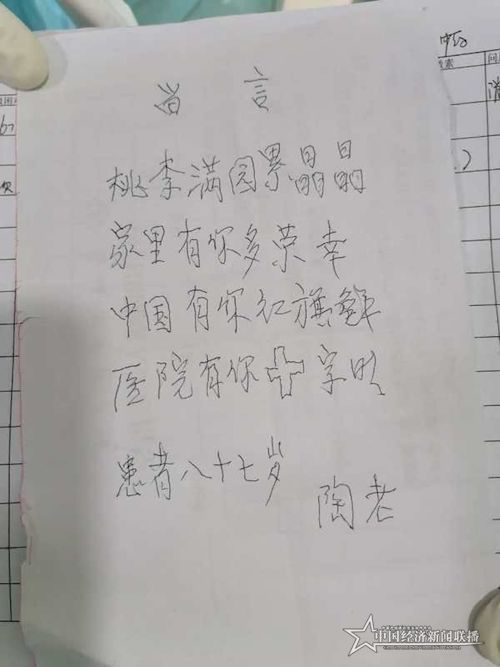 留言
桃李满园累晶晶
家里有你多荣幸
中国有你红旗鲜
医院有你十字明
患者八十七岁
陶老
中国经济新闻联播